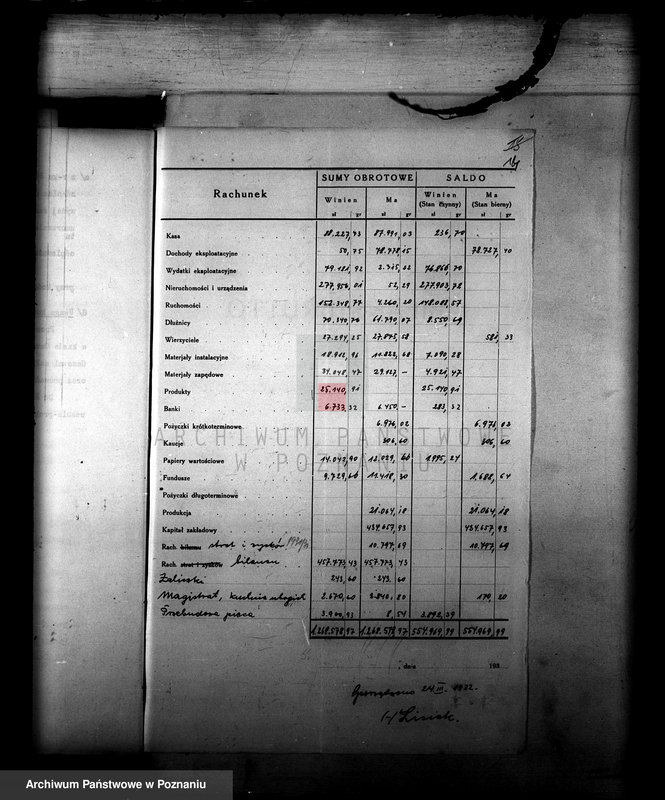 SUMY OBROTOWE SALDO
Rachunek Winien Ma Winien (Stan czynny) Ma (Stan bierny)
zł gr zł gr zł gr zł gr
Kasa 88.227,73 87.991,03 236,70
Dochody eksploatacyjne 50,75 78.778,15 78.727,40
Wydatki eksploatacyjne 79.181,92 2.315,22 76.866,70
Nieruchomości i urządzenia 277.956,01 52,29 277.903,72
Ruchomości 152.348,77 4.260,20 148.088,57
Dłużnicy 70.340,76 61.790,07 8.550,69
Wierzyciele 27.294,25 27.875,58 581,33
Materjały instalacyjne 18.912,96 11.822,68 7.090,28
Materjały zapędowe 34.048,47 29.127,— 4.921,47
Produkty 25.140,91 25.140,91
Banki 6.733,32 6.450,— 283,32
Pożyczki krótkoterminowe 6.976,02
Kaucje 306,60 306,60
Papiery wartościowe 14.043,90
Fundusze 9.729,66 11.418,30 1.688,64
Pożyczki długoterminowe
Produkcja 21.064,18 21.064,18
Kapitał zakładowy 434.657,93 434.657,93
Rach. bilansu strat i zysków 10.797,69 10.797,69
Rach. strat i zysków bilansu 457.773,43 457.773,43
Zaliczki 243,60 243,60
Magistrat, kuchnia ubogich 2.670,60 2.840,80 170,20
Przebudowa pieca 3.900,93 8,54 3.892,39
1.268.578,97 1.268.578,97 554.969,99 554.969,99
, dnia 193
24 III. 1932.
ARCHIWUM PAŃSTWOWE
W POZNANIU
Archiwum Państwowe w Poznaniu